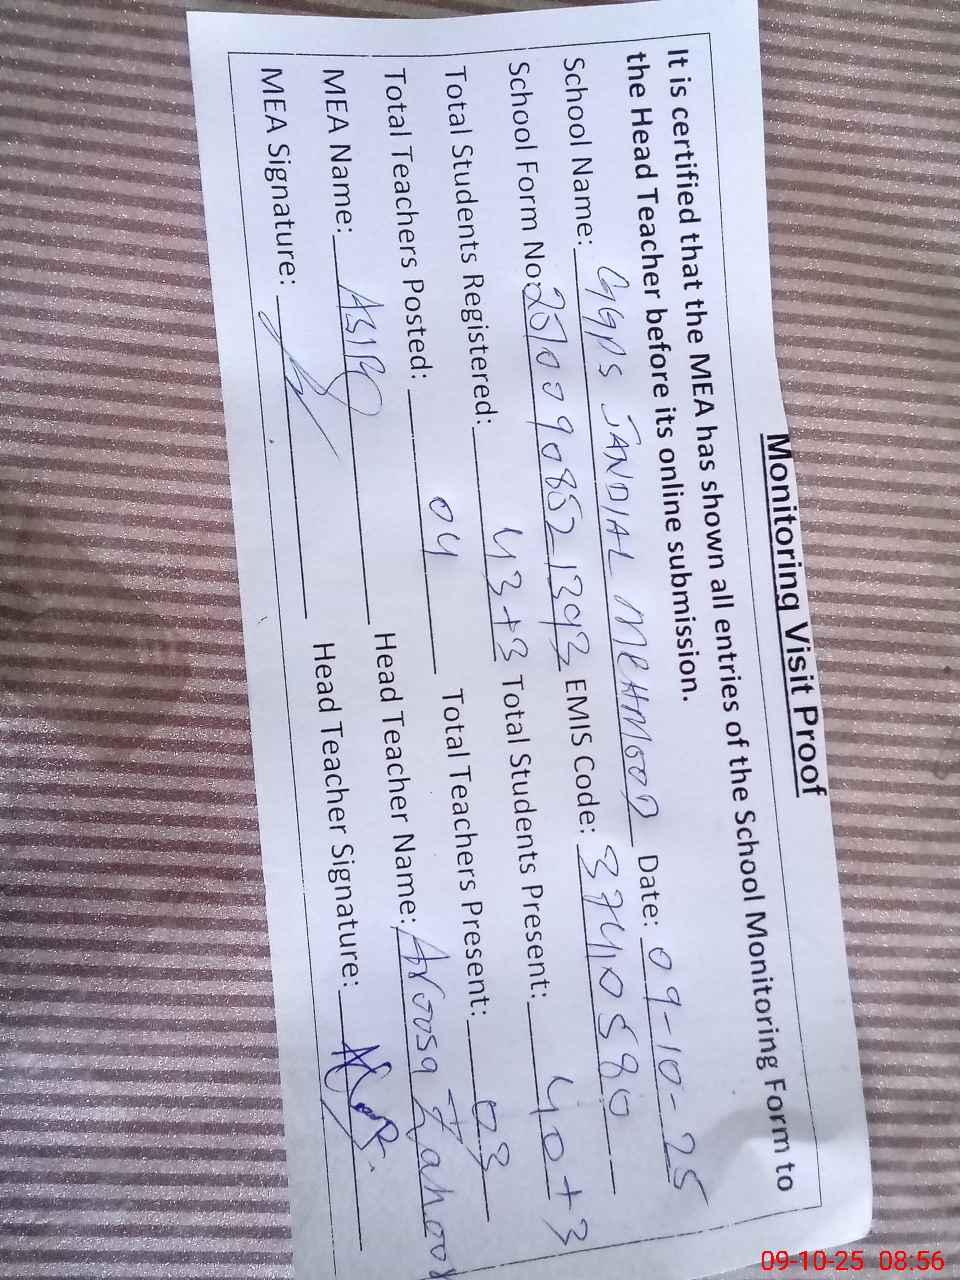 Monitoring Visit Proof
It is certified that the MEA has shown all entries of the School Monitoring Form to
the Head Teacher before its online submission.
School Name: GGPS JANDIAL MEHMOOD Date: 09-10-25
School Form No: EMIS Code: 37410580
Total Students Registered: 43+3 Total Students Present: 40+3
Total Teachers Posted: 04 Total Teachers Present: 03
MEA Name: ASIF Head Teacher Name: Aroosa Zahoor
MEA Signature: Head Teacher Signature:
09-10-25 08:56